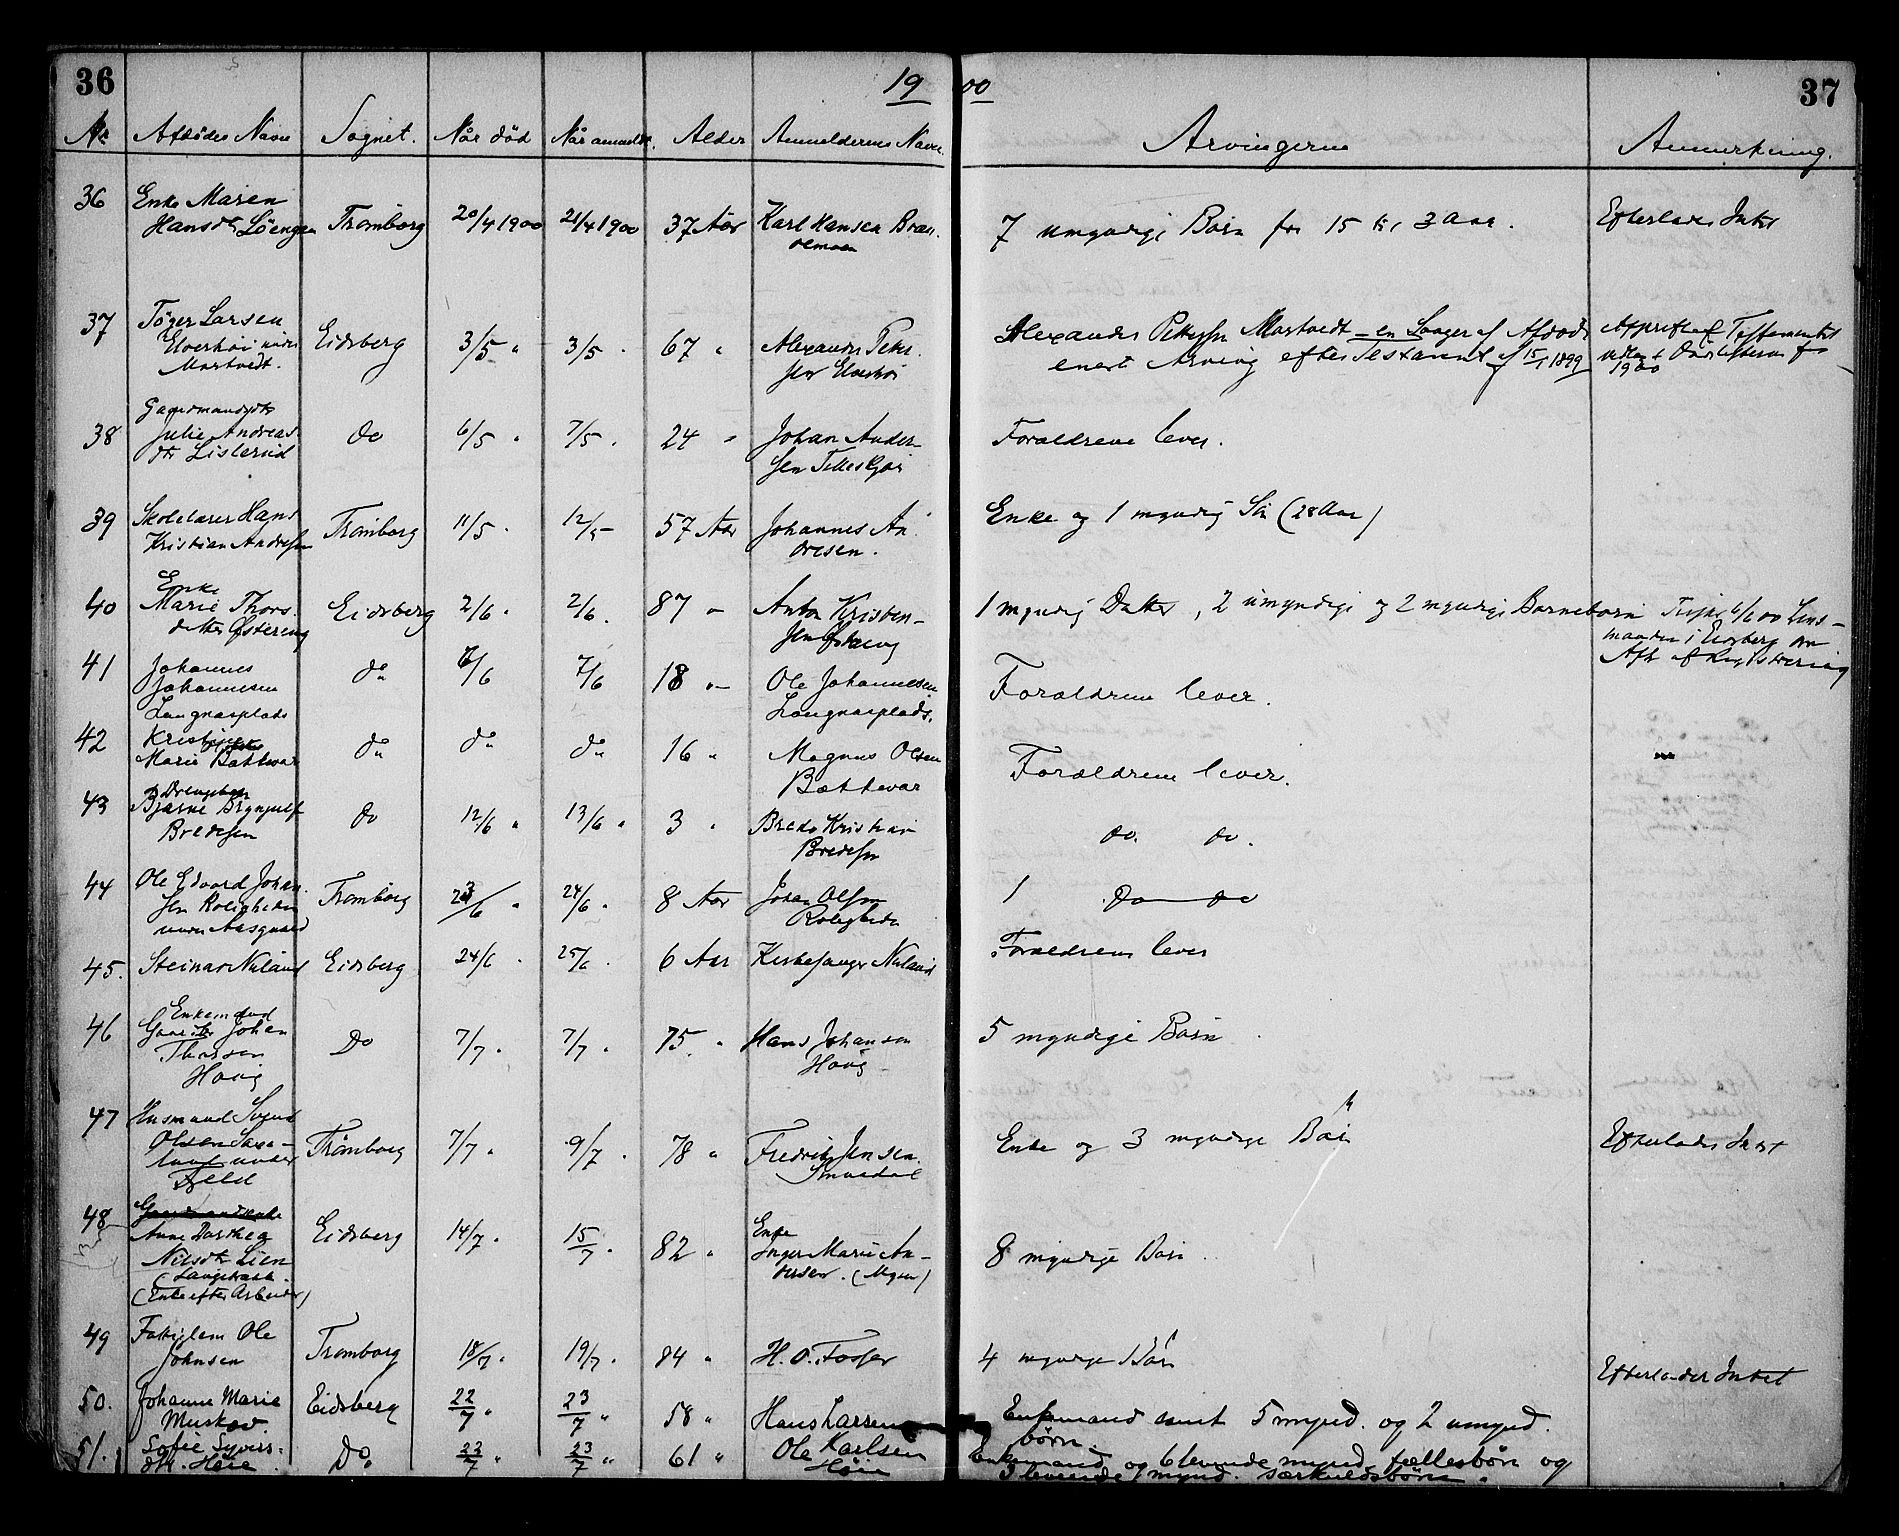 36
1900
37
No Afdødes Navn Sognet. Når død Når anmeldt. Alder Anmelderens Navn. Arvingerne Anmerkning.
36 Enke Maren
Hansdtr Löengen Trømborg 20/4 1900 21/4 1900 37 Aar Karl Hansen 7 umyndige Børn fra 15 til 3 Aar. Efterlader Intet
37 Töger Larsen
Elverhöi under
Mastvedt. Eidsberg 3/5 " 3/5 . 67 " Alexander Peter-
sen Elverhöi
Alexander Pettersen Mastvedt - en af Afdøde
enest Arving efter Testament af 1899
Testamentet
1900
38 Gaardmandsdtr
Julie Andreas-
dtr Listerud Do 6/5 " 7/5 . 24 " Johan Ander-
sen Forældrene lever.
39 Skolelærer Hans
Kristian Andresen Trømborg 11/5 . 12/5 57 Aar Johannes An-
dresen. Enke og 1 myndig Søn (28 Aar)
40 Enke
Marie Thors-
datter Østereng Eidsberg 2/6 . 2/6 . 87 " Anton Kristen-
sen Østereng 1 myndig Datter, 2 umyndige og 2 myndige Børnebørn
Lens-
manden i Eidsberg om
Afh af Registrering
41 Johannes
Johannesen
Langnæsplads Do 7/6 7/6 18 " Ole Johannesen
Langnæsplads. Forældrene lever.
42 Kristine
Marie Do Do Do 16 " Magnus Olsen Forældrene lever.
43 Drengebarn
Bjarne Brynjulf
Bredesen Do 12/6 " 13/6 " 3 " Brede Kristian
Bredesen do. do.
44 Ole Edvard Johan-
sen Roligheden
under Aasgaard Trømborg 23/6 " 24/6 . 8 Aar Johan Olsen
Roligheden 1 Do do
45. Steinar Nuland Eidsberg 24/6 . 25/6 . 6 Aar Kirkesanger Nuland Forældrene lever
46 Enkemand
Johan
Thorsen
Houg Do 7/7 . 7/7 . 75 " Hans Johansen
Houg 5 myndige Børn
47 Husmand Svend
Olsen
under
Fjeld Trømborg 7/7 " 9/7 . 78 " Fredrik Jensen
Enke og 3 myndige Børn Efterlader Intet
48 Gaardmandsenke
Anne Dorthea
Nilsdtr Lien
(Enke efter Arbeider) Eidsberg 14/7 " 15/7 . 82 " Enke
Inger Marie An-
dersen. (Mysen) 8 myndige Børn
49 Fattiglem Ole
Johnsen Trømborg 18/7 . 19/7 . 84 " H. O. Fosser 4 myndige Børn Efterlader Intet
50. Johanne Marie
Eidsberg 22/7 " 23/7 " 58 " Hans Larsen Enkemand samt 5 mynd. og 2 umynd.
børn.
51. Sofie Syvers-
dtr. Høie Do 22/7 " 23/7 " 61 " Ole Karlsen
Høie Enkemand og 6 levende mynd. fællesbörn og
3 levende mynd. særkuldsbørn.